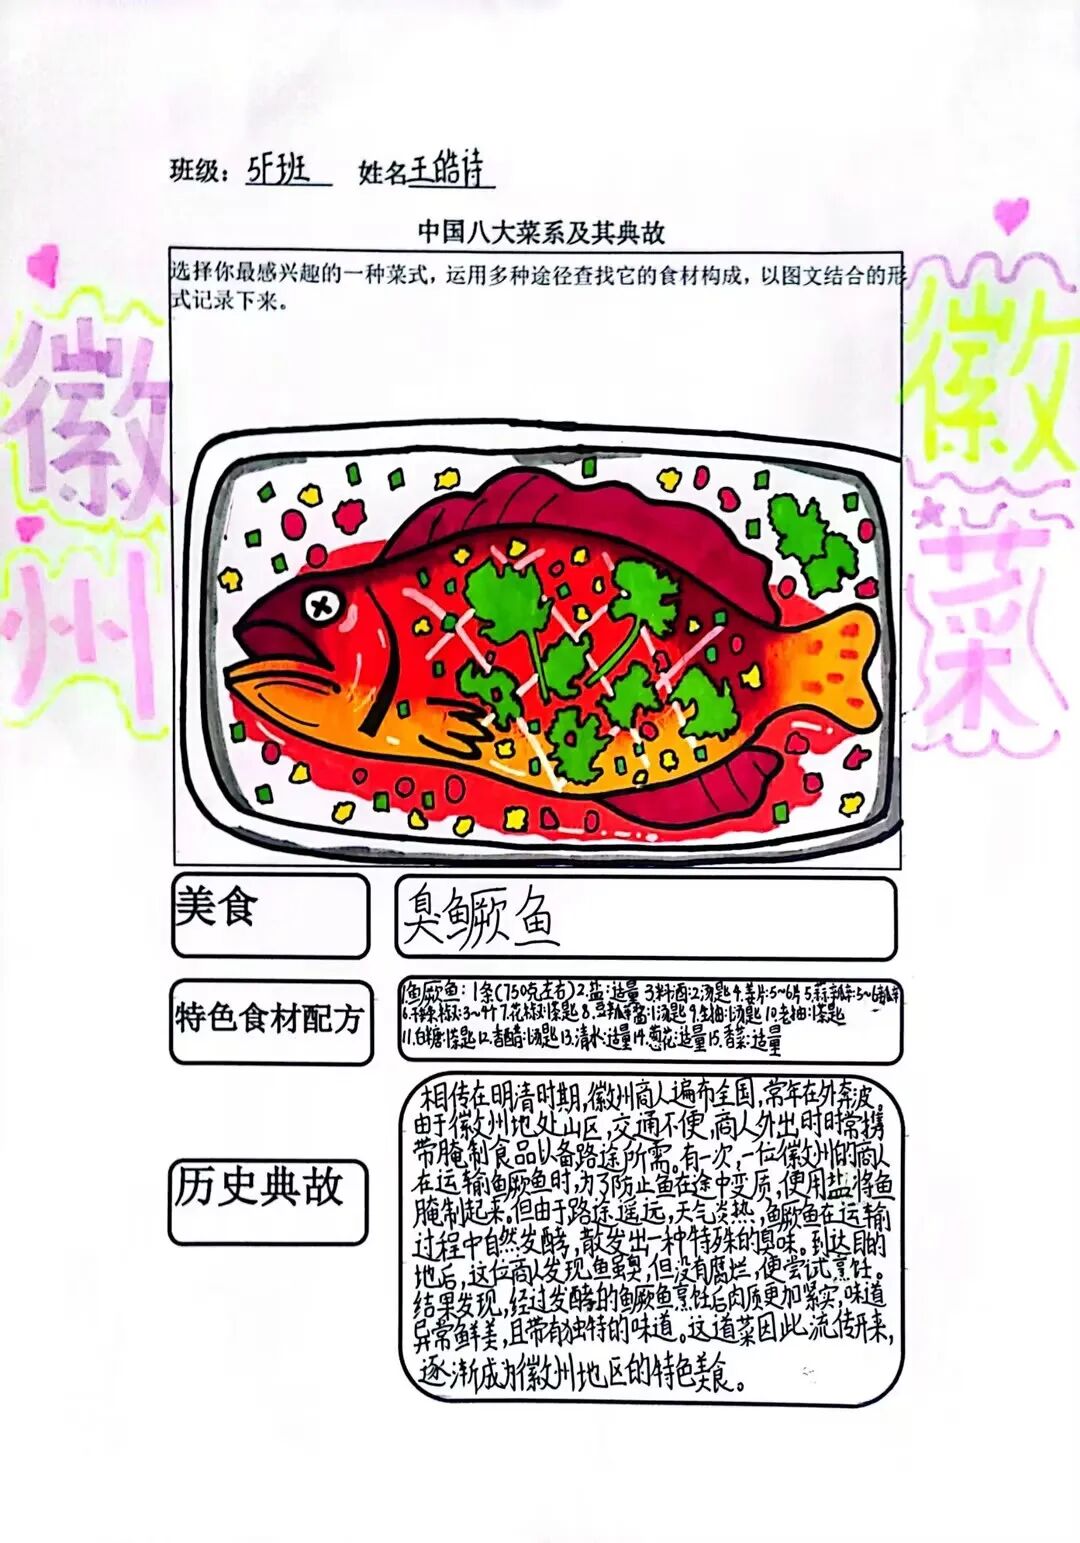 班级：5F班 姓名王皓诗
中国八大菜系及其典故
选择你最感兴趣的一种菜式，运用多种途径查找它的食材构成，以图文结合的形
式记录下来。
徽州
徽菜
美食
臭鳜鱼
特色食材配方
1.鱼鳜鱼：1条(750克左右)2.盐：适量 3.料酒：2汤匙 4.姜片：5~6片 5.蒜瓣：5~6瓣
6.干辣椒：3~4个 7.花椒：1茶匙 8.豆瓣酱：1汤匙 9.生抽：1汤匙 10.老抽：1茶匙
11.白糖：1茶匙 12.香醋：1汤匙 13.清水：适量 14.葱花：适量 15.香菜：适量
历史典故
相传在明清时期，徽州商人遍布全国，常年在外奔波。
由于徽州地处山区，交通不便，商人外出时时常携
带腌制食品以备路途所需。有一次，一位徽州的商人
在运输鱼鳜鱼时，为了防止鱼在途中变质，便用盐将鱼
腌制起来。但由于路途遥远，天气炎热，鳜鱼在运输
过程中自然发酵，散发出一种特殊的臭味。到达目的
地后，这位商人发现鱼虽臭，但没有腐烂，便尝试烹饪。
结果发现，经过发酵的鳜鱼烹饪后肉质更加紧实，味道
异常鲜美，且带有独特的味道。这道菜因此流传开来，
逐渐成为徽州地区的特色美食。